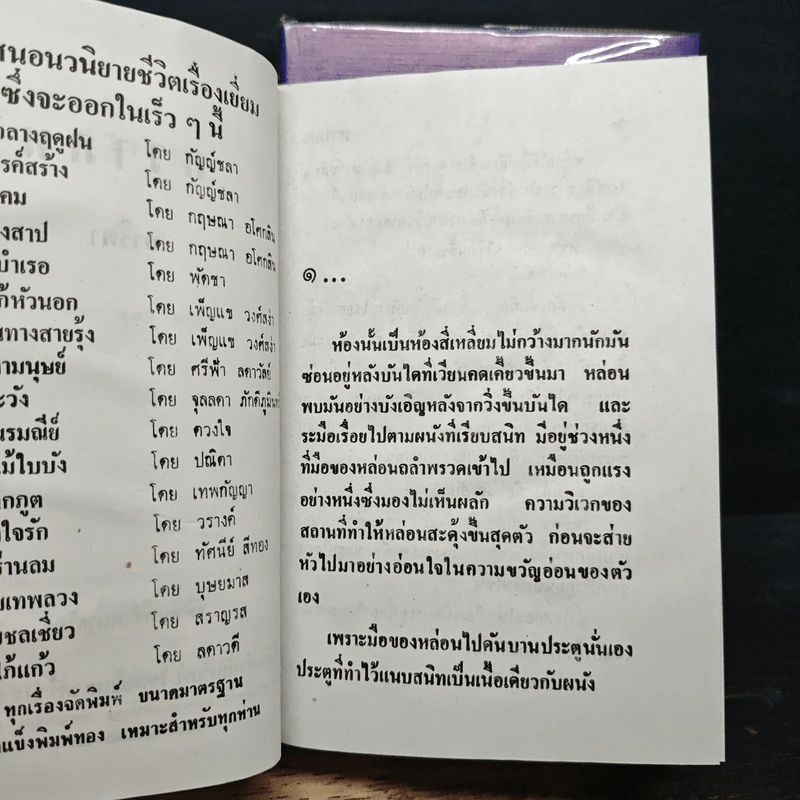 สนอนวนิยายชีวิตเรื่องเยี่ยม
ซึ่งจะออกในเร็ว ๆ นี้
กลางฤดูฝน โดย กัญญ์ชลา
รค์สร้าง โดย กัญญ์ชลา
คม โดย กฤษณา อโศกสิน
งสาป โดย กฤษณา อโศกสิน
บำเรอ โดย พัดชา
ก้หัวนอก โดย เพ็ญแข วงศ์สง่า
นทางสายรุ้ง โดย เพ็ญแข วงศ์สง่า
ามนุษย์ โดย ศรีฟ้า ลดาวัลย์
ะวัง โดย จุลลดา ภักดีภูมินทร์
นรมณีย์ โดย ดวงใจ
ม้ใบบัง โดย ปณิดา
กภูต โดย เทพกัญญา
ใจรัก โดย วรางค์
ร่านลม โดย ทัศนีย์ สีทอง
ยเทพลวง โดย บุษยมาส
ยชลเชี่ยว โดย สราญรส
ไก้แก้ว โดย ลดาวดี
ทุกเรื่องจัดพิมพ์ ขนาดมาตรฐาน
แข็งพิมพ์ทอง เหมาะสำหรับทุกท่าน
๑ ...
ห้องนั้นเป็นห้องสี่เหลี่ยมไม่กว้างมากนักมัน
ซ่อนอยู่หลังบันไดที่เวียนคดเคี้ยวขึ้นมา หล่อน
พบมันอย่างบังเอิญหลังจากวิ่งขึ้นบันได และ
ระมือเรื่อยไปตามผนังที่เรียบสนิท มีอยู่ช่วงหนึ่ง
ที่มือของหล่อนถลำพรวดเข้าไป เหมือนถูกแรง
อย่างหนึ่งซึ่งมองไม่เห็นผลัก ความวิเวกของ
สถานที่ทำให้หล่อนสะดุ้งขึ้นสุดตัว ก่อนจะส่าย
หัวไปมาอย่างอ่อนใจในความขวัญอ่อนของตัว
เอง
เพราะมือของหล่อนไปดันบานประตูนั่นเอง
ประตูที่ทำไว้แนบสนิทเป็นเนื้อเดียวกับผนัง